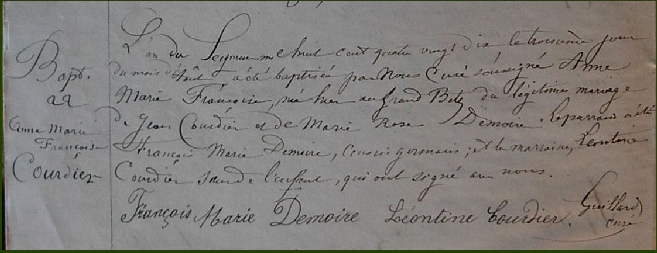 Bapt.
22
Anne Marie
Françoise
Courdier
L'an du Seigneur mil huit cent quatre vingt dix le troisième jour
du mois d'Août a été baptisée par Nous Curé soussigné Anne
Marie Françoise, née hier au Grand Bois du légitime mariage
de Jean Courdier et de Marie Rose Demoire. Le parrain a été
François Marie Demoire, cousin germain; et la marraine, Léontine
Courdier, de l'enfant, qui ont signé avec nous.
François Marie Demoire Léontine Courdier. Guillard
curé